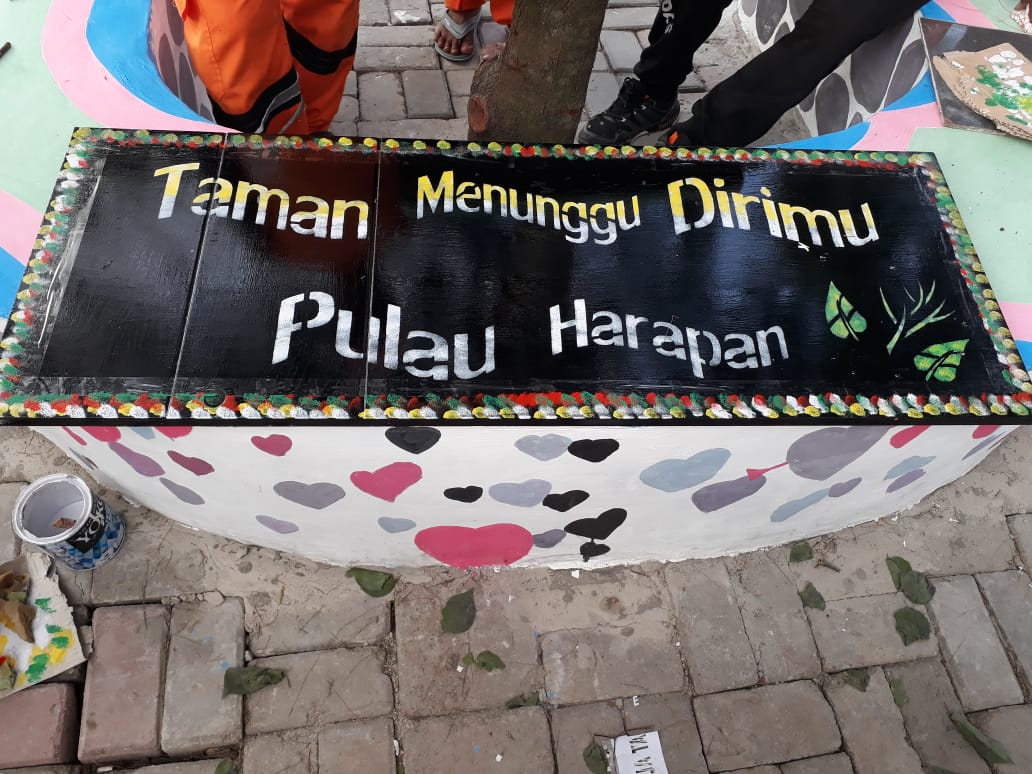 Taman Menunggu Dirimu
Pulau Harapan
YOKO